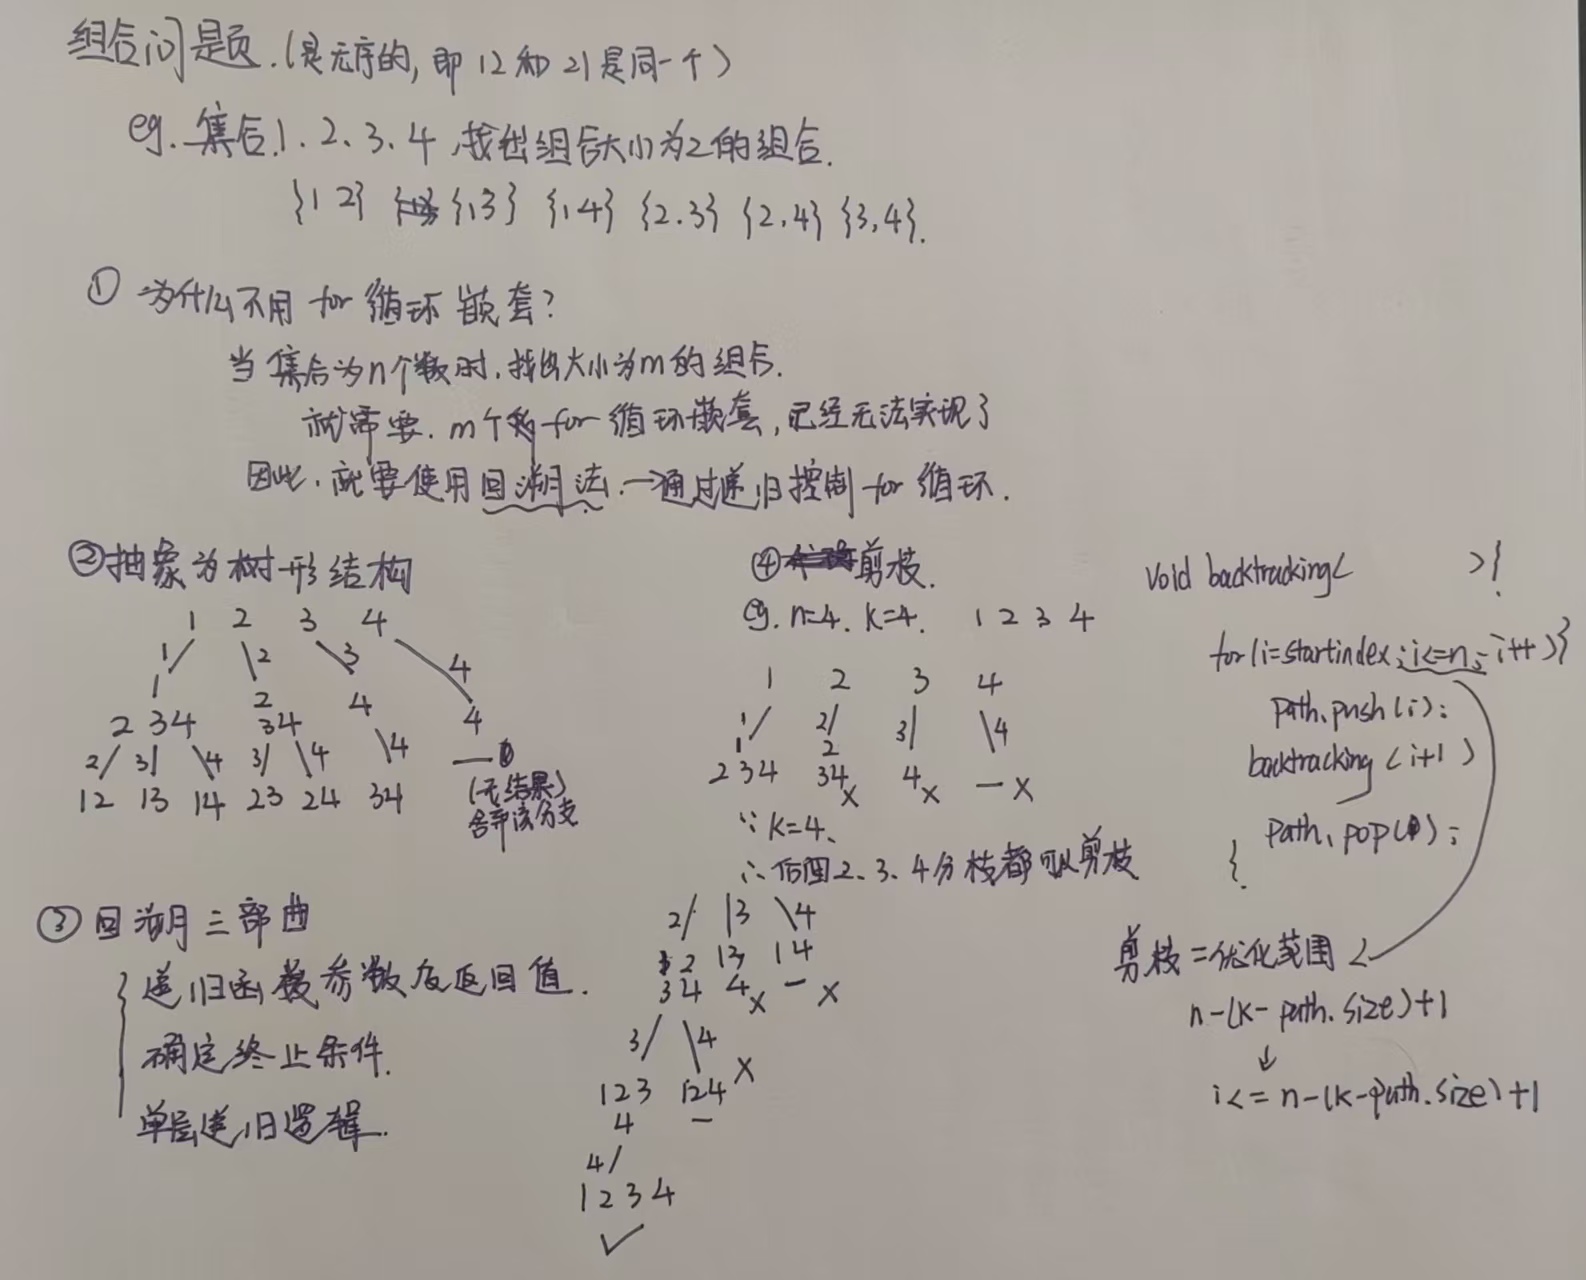 组合问题.(是无序的,即12和21是同一个)
eg.集合1、2、3、4,找出组合大小为2的组合.
{1 2} {1,3} {1,4} {2.3} {2,4} {3,4}.
① 为什么不用 for 循环 嵌套?
当集合为n个数时,找出大小为m的组合.
就需要.m个 for 循环嵌套,已经无法实现了
因此,就要使用回溯法.→通过递归控制 for 循环.
②抽象为树形结构
1 2 3 4
1 2 3 4
1 2
2 34 34 4 4
2 3 4 3 4 4 —
12 13 14 23 24 34
(无结果)
舍弃该分支
③ 回溯三部曲
递归函数参数及返回值.
确定终止条件.
单层递归逻辑.
④ 剪枝.
eg. n=4. k=4. 1 2 3 4
1 2 3 4
1 2 3 4
1 2
2 3 4 34 x 4 x — x
∵ k=4、
∴后面2、3、4分枝都可以剪枝
2 3 4
12 13 14
3 4 4 x — x
3 4
123 124 x
4 —
4
1 2 3 4
✓
void backtracking( ){
for(i=startindex;i<=n;i++){
path.push(i);
backtracking (i+1)
path.pop( );
}
剪枝=优化范围
n-(k- path.size)+1
↓
i<= n-(k-path.size)+1